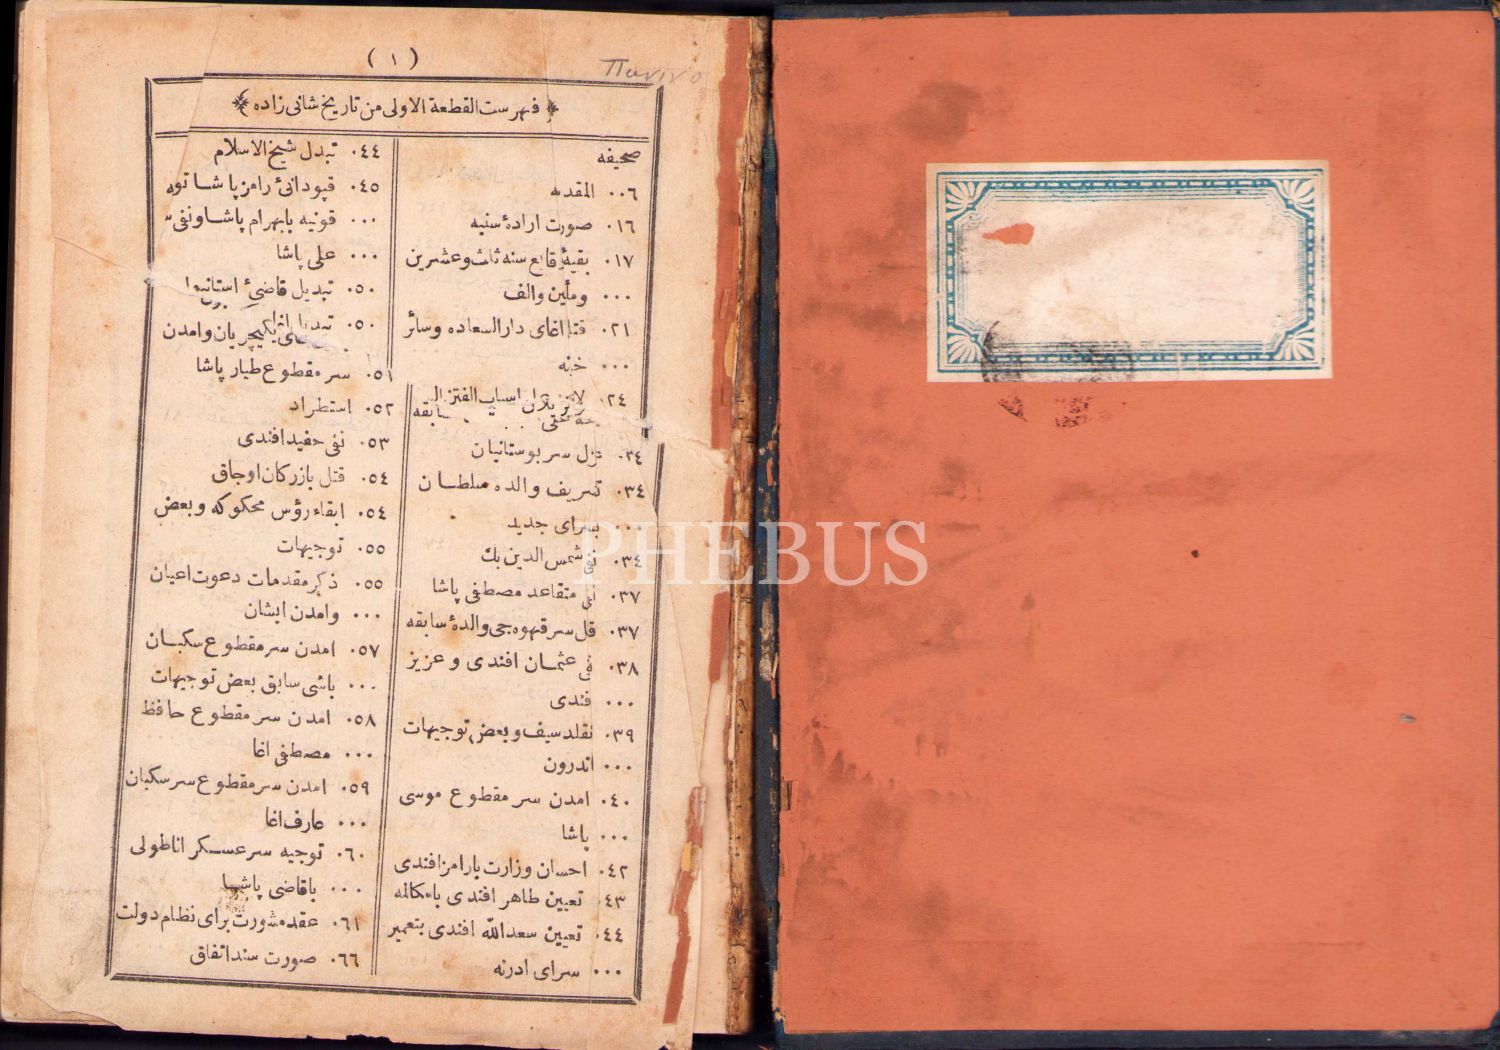 ( ١ )
فهرست القطعة الاولى من تاريخ شانى زاده
صحيفه
٠٠٦ المقدمه
٠١٦ صورت ارادۀ سنيه
٠١٧ بقيۀ وقايع سنه ثلث وعشرين
... ومأتين والف
٠٢١ اغاى دار السعاده وسائر
... خزنه
٠٢٤ اسباب سابقه
٠٣٤ عزل سر بوستانيان
٠٣٤ تشريف والده سلطان
... بسراى جديد
٠٣٤ نفى شمس الدين بك
٠٣٧ متقاعد مصطفى پاشا
٠٣٧ قتل سر قهوه جى والدۀ سابقه
٠٣٨ نفى عثمان افندى و عزيز
... افندى
٠٣٩ تقلد سيف وبعض توجيهات
... اندرون
٠٤٠ امدن سر مقطوع موسى
... پاشا
٠٤٢ احسان وزارت برامز افندى
٠٤٣ تعيين طاهر افندى بامكالمه
٠٤٤ تعيين سعد الله افندى بتعمير
... سراى ادرنه
٠٤٤ تبدل شيخ الاسلام
٠٤٥ قپودانئ رامز پاشا توجيه
... قونيه بابهرام پاشا ونفى
... على پاشا
٠٥٠ تبديل قاضئ استانبول
٠٥٠ يكيچريان وامدن
٠٥١ سر مقطوع طيار پاشا
٠٥٢ استطراد
٠٥٣ نفى حفيد افندى
٠٥٤ قتل بازركان اوجاق
٠٥٤ ابقاء رؤس محكوكه وبعض
٠٥٥ توجيهات
٠٥٥ ذكر مقدمات دعوت اعيان
... وامدن ايشان
٠٥٧ امدن سر مقطوع سكبان
... باشى سابق بعض توجيهات
٠٥٨ امدن سر مقطوع حافظ
... مصطفى اغا
٠٥٩ امدن سر مقطوع سر سكبان
... عارف اغا
٠٦٠ توجيه سر عسكر اناطولى
... باقاضى پاشا
٠٦١ عقد مشورت براى نظام دولت
٠٦٦ صورت سند اتفاق
PHEBUS